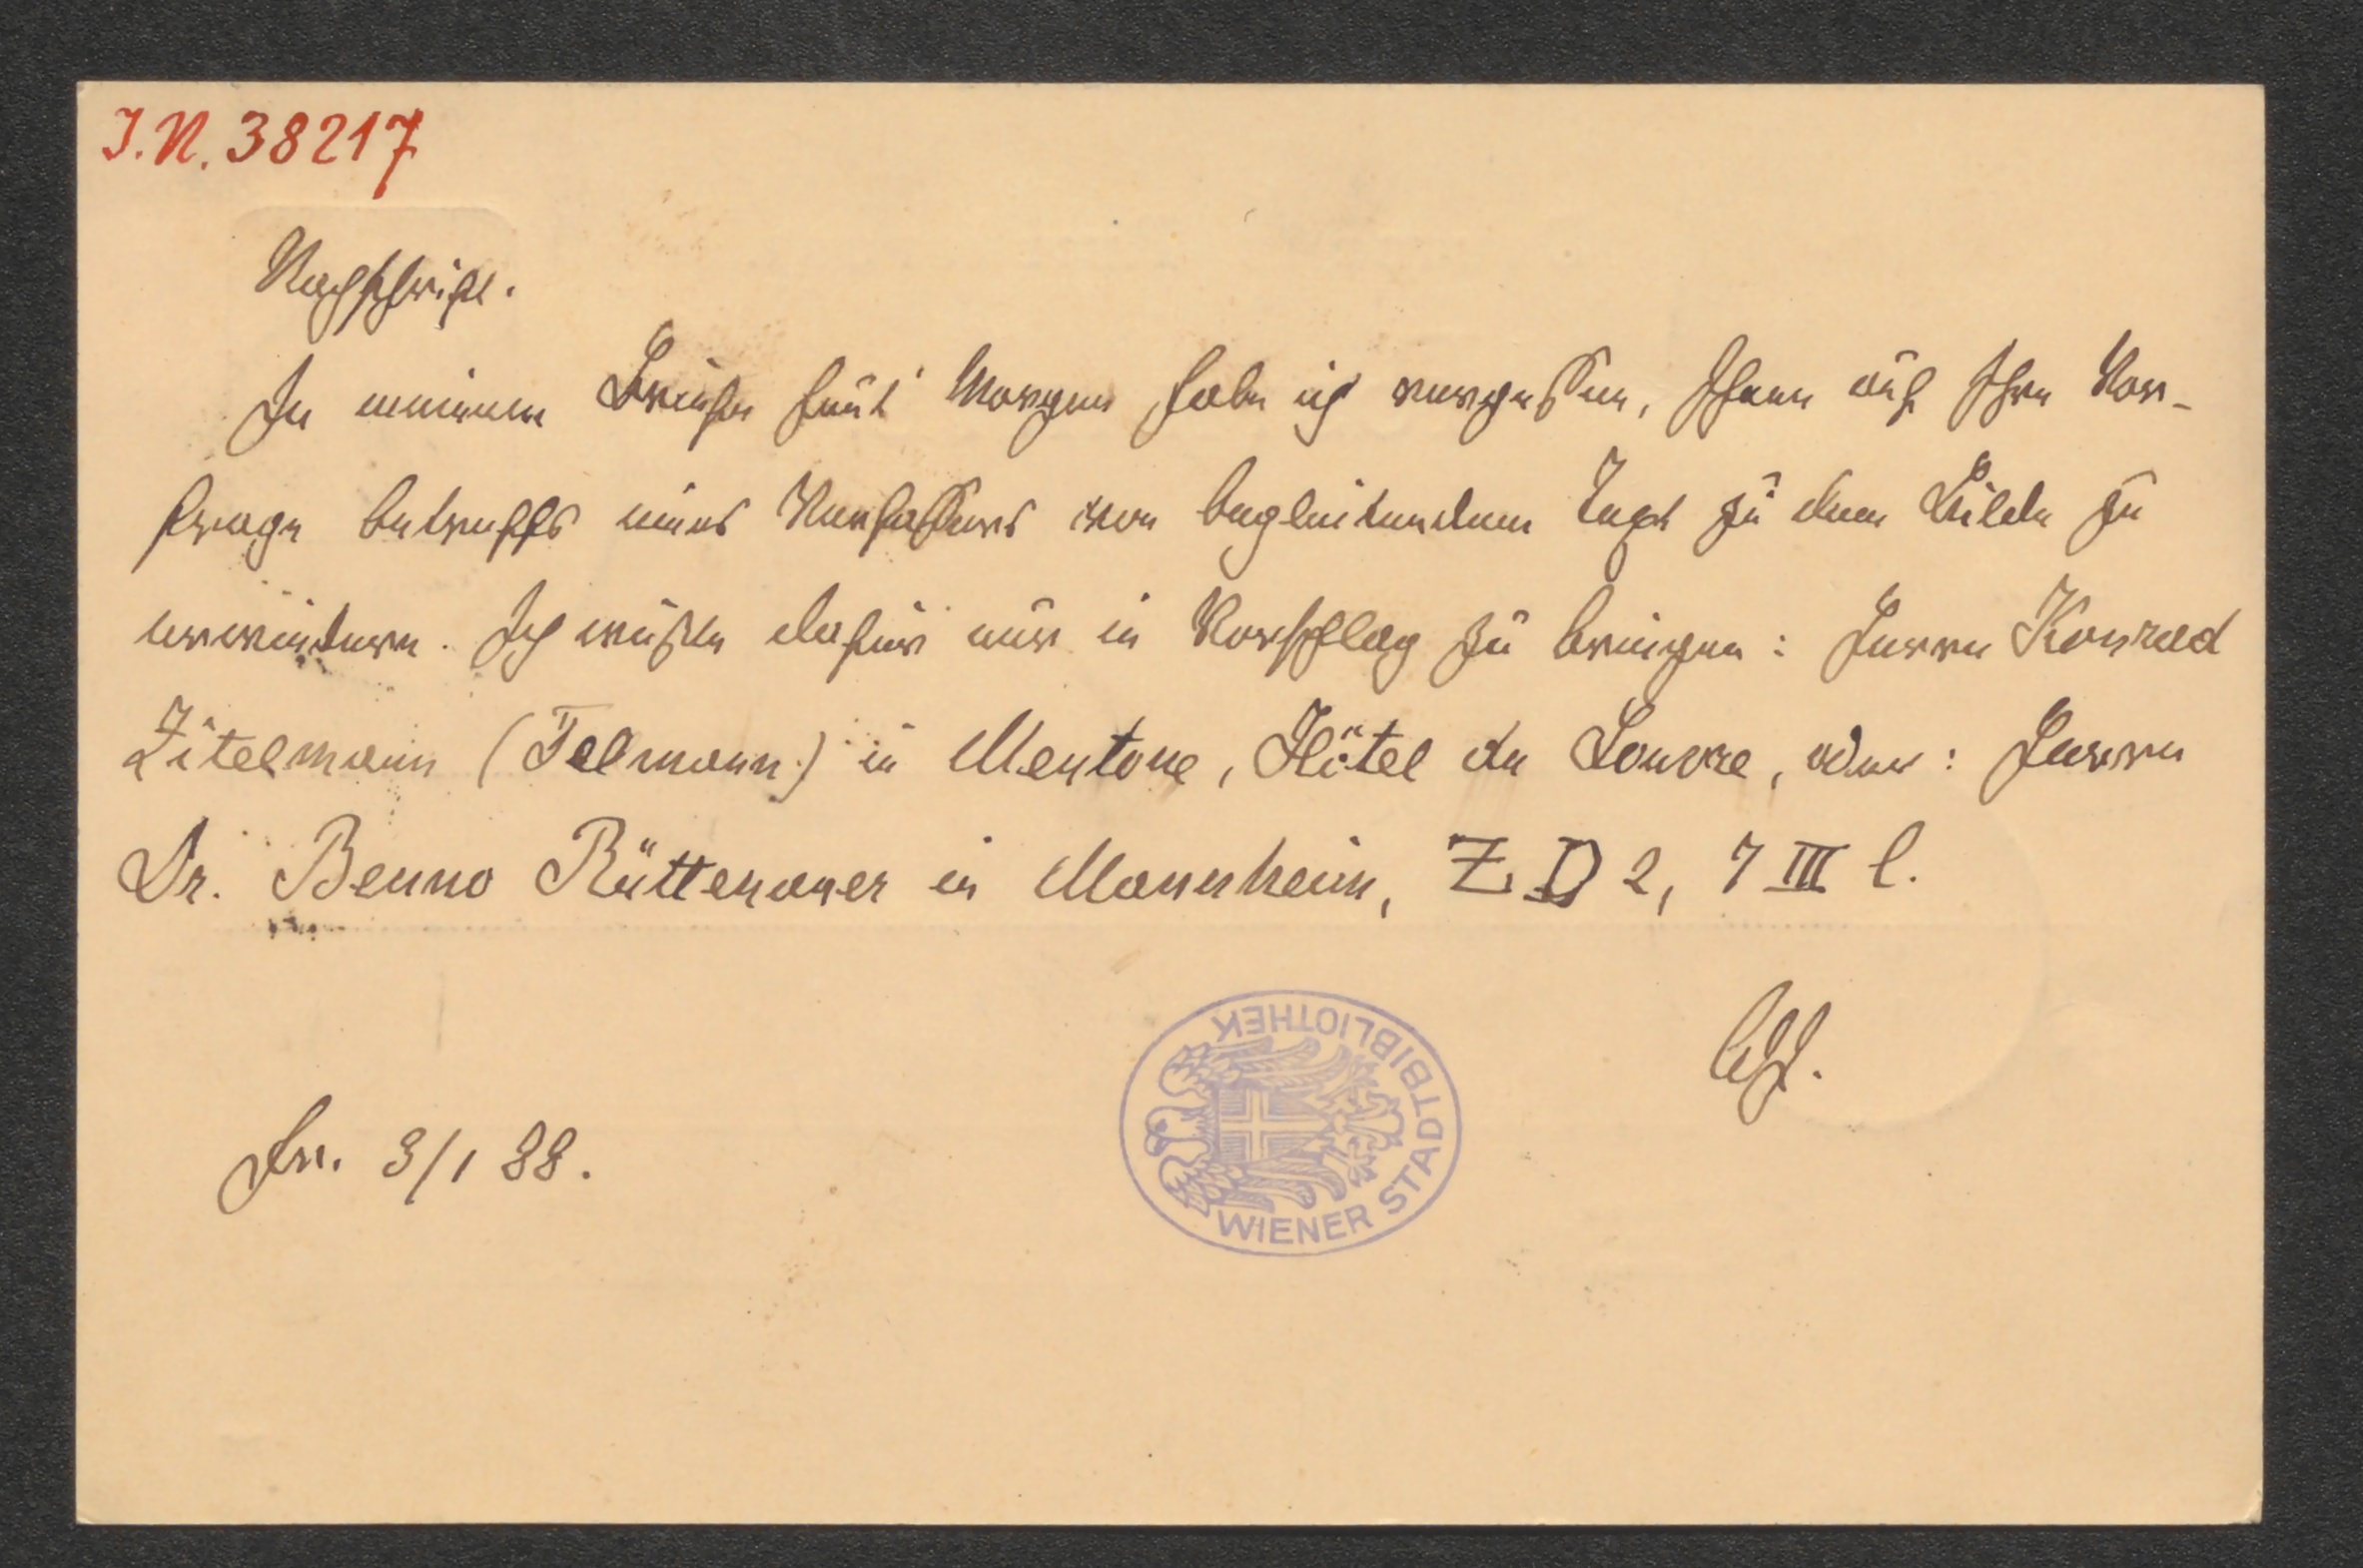 J.N. 38217
Nachschrift.
In meinem Briefe heut' Morgen habe ich vergessen, Ihnen auf Ihre Vor-
frage betreffs eines Verfassers von begleitendem Text zu dem Bilde zu
erwidern. Ich wüßte dafür nur in Vorschlag zu bringen: Herrn Konrad
Zitelmann (Telmann) in Mentone, Hôtel du Louvre, oder: Herrn
Dr. Benno Rüttenauer in Mannheim, Z D 2, 7 III l.
WIENER STADTBIBLIOTHEK
3/1 88.